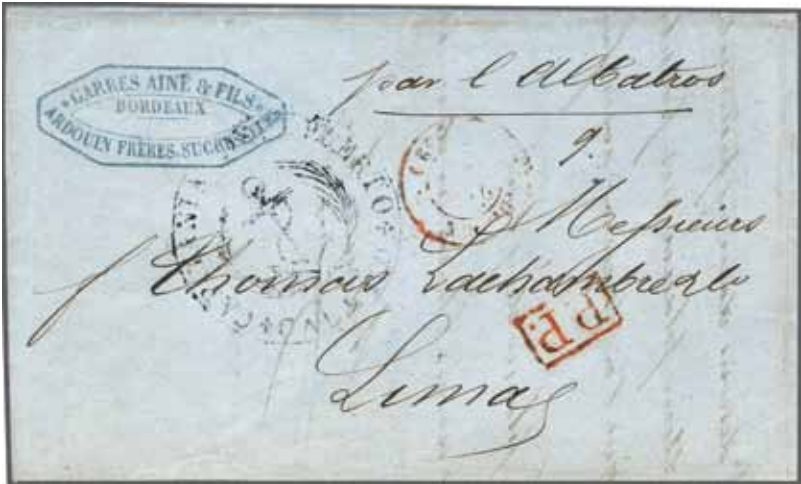 GARRES AINÉ & FILS
BORDEAUX
ARDOUIN FRÈRES. SUCC
par l'Albatros
Messieurs
Thomas Lachambre & Co
P.P.
Lima